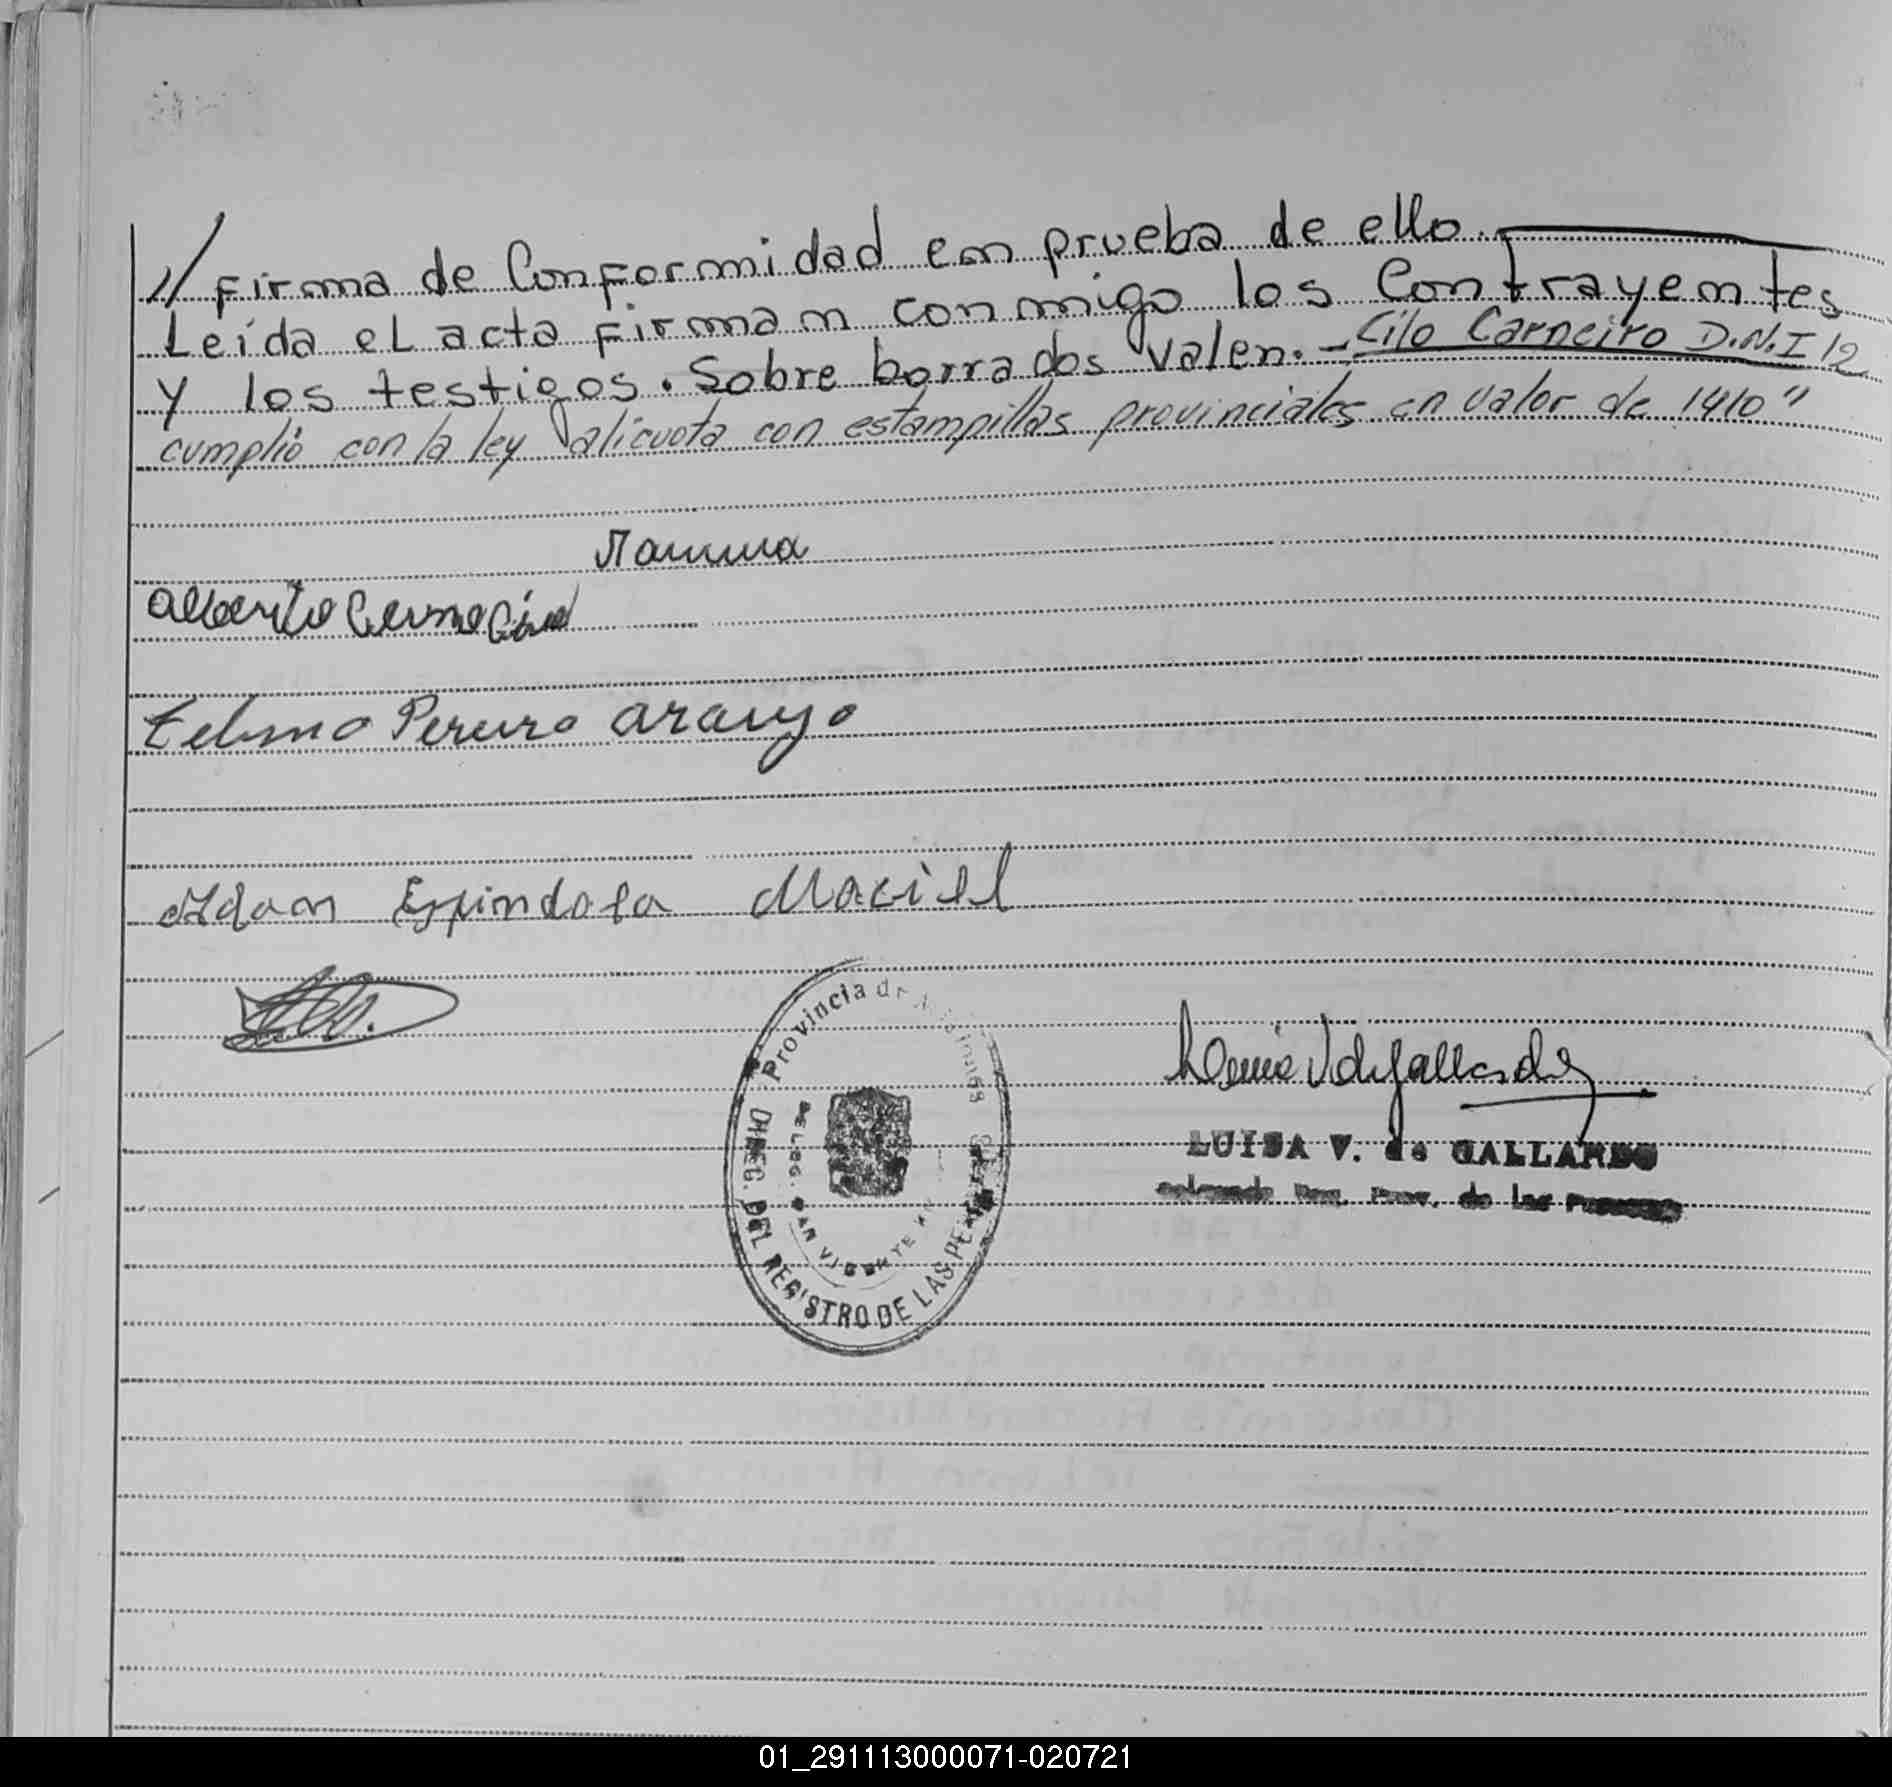 // firma de Conformidad en prueba de ello.
Leída el acta firman conmigo los Contrayentes
y los testigos. Sobre borrados valen. - Cilo Carneiro D.N.I 12
cumplió con la ley alicuota con estampillas provinciales en valor de 1410"
Telmo Pereira Araujo
Espindola Maciel
Provincia de Misiones
DIREC. DEL REGISTRO DE LAS PERS
DELEG. SAN VICENTE
LUISA V. de GALLARDO
Reg. Prov. de las
01_291113000071-020721